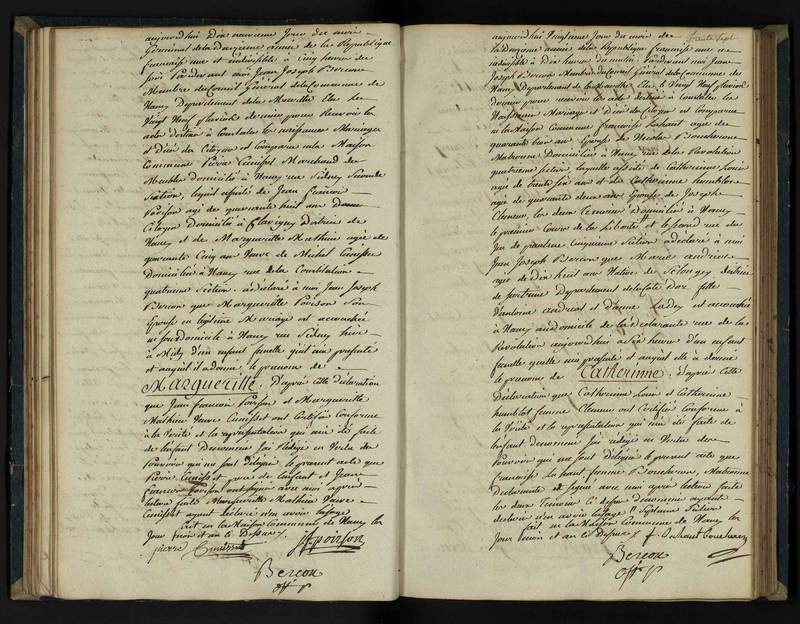 aujourd'hui Dix neuvieme Jour du mois
Germinal de la Douzieme année de la Republique
francaise une et indivisible à Cinq heures du
soir Pardevant moi Jean Joseph Bercon
Membre du Conseil Général de la Commune de
Nancy Département de la Meurthe Elu le
Vingt Neuf pluviose dernier pour Recevoir les
actes destinés à Constater les naissances Mariages
et Décès des Citoyens est Comparu en la Maison
Commune Pierre Cunisset Marchand de
Meubles Domicilié à Nancy rue Sidney Seconde
Section, lequel assisté de Jean francois
Poirson agé de quarante huit ans
Citoyen Domicilié à flavigny District de
Nancy et de Marguerite Mathieu agée de
quarante Cinq ans Veuve de Michel Cunisset
Domiciliée à Nancy rue de la Constitution
quatrieme Section a déclaré à moi Jean Joseph
Bercon que Marguerite Poirson Son
Epouse en legitime Mariage est accouchée
en son domicile à Nancy rue Sidney hier
à Midy d'un enfant femelle qu'il m'a presenté
et auquel il a donné le prenom de
Marguerite. D'après cette déclaration
que Jean francois Poirson et Marguerite
Mathieu Veuve Cunisset ont Certifié Conforme
à la Verité et la représentation qui m'a été faite
de l'enfant Denommé J'ai Rédigé en Vertu des
Pouvoirs qui me sont Délégués le present acte que
Pierre Cunisset pere de l'enfant et Jean
francois Poirson ont signé avec moi après
lecture faite Marguerite Mathieu Veuve
Cunisset ayant déclaré n'en avoir l'usage
fait en la Maison Commune de Nancy les
Jour mois et an ci Dessus
pierre Cunisset
J F poirson
Bercon
off. p.
trente sept
aujourd'hui Vingtieme Jour du mois de
la Douzieme année de la Republique francaise une et
indivisible à Dix heures du matin Pardevant moi Jean
Joseph Bercon Membre du Conseil Général de la Commune de
Nancy Département de la Meurthe Elu le Vingt Neuf pluviose
dernier pour recevoir les actes destinés à Constater les
Naissances Mariages et Décès des Citoyens est comparue
en la Maison Commune francoise agée de
quarante trois ans Epouse de Nicolas Boucheron
Domiciliée à Nancy rue de la Revolution
quatrieme Section, laquelle assistée de Catherine Louis
agée de trente six ans et de Catherine humblot
agée de quarante deux ans Epouse de Joseph
Clement, les deux Temoins Domiciliés à Nancy
le premier Cour de la Liberté et le second rue du
Jeu de paulme Cinquieme Section a déclaré à moi
Jean Joseph Bercon que Marie andriot
agée de Dix huit ans Native de Selongey District
de Departement de la Cote D'or fille
d'antoine andriot et d'anne est accouchée
à Nancy au domicile de la declarante rue de la
Revolution aujourd'hui à heures d'un enfant
femelle qu'elle m'a presenté et auquel elle a donné
le prenom de Catherinne. D'après cette
Déclaration que Catherine Louis et Catherine
humblot femme Clement ont Certifié conforme à
la Verité et la représentation qui m'a été faite de
l'enfant Denommé J'ai redigé en Vertu des
Pouvoirs qui me sont Délégués le present acte que
francoise femme Boucheron,
Declarante a signé avec moi après lecture faite
les deux Temoins ci dessus denommés ayant
declaré n'en avoir l'usage
fait en la Maison Commune de Nancy les
Jour mois et an ci Dessus
Bercon
off. p.